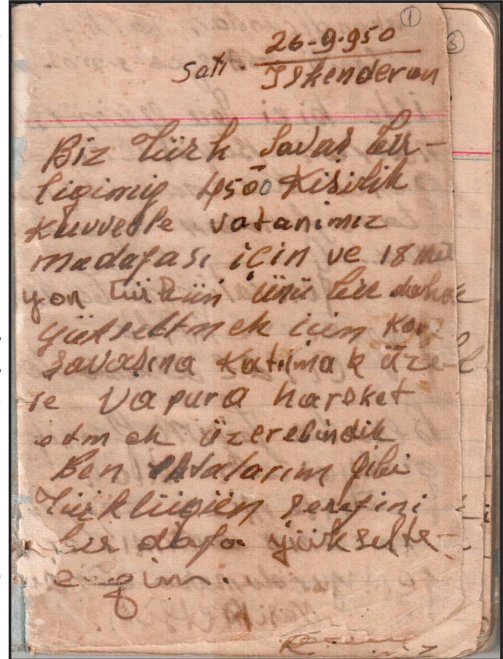 1
3
26-9-950
Salı. İskenderun
Biz Türk Savaş bir-
ligimiz 4500 Kisilik
kuvvetle vatanımız
madafası için ve 18 mil
yon türkün ünü bir daha
yükseltmek icin Kore
Savasına Katılmak üze
re Vapura hareket
etmek üzerebindik
Ben Atalarım gibi
Türklügün serefini
bir dafa yükselte-
cegim.